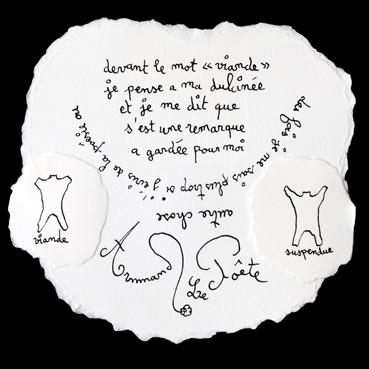 devant le mot « viande »
je pense a ma dulcinée
et je me dit que
s'est une remarque
a gardée pour moi
des fois je ne sais plus trop si j'éris de la poésie ou
autre chose
viande
suspendue
Armand
Le Poête